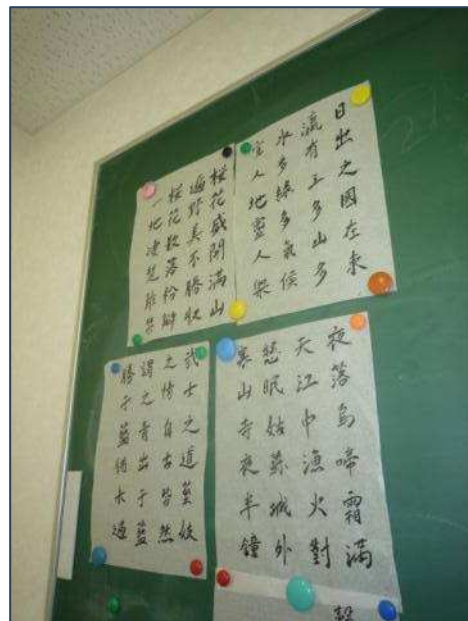 日出之國在東
瀛有三多山多
水多綠多氣候
宜人地靈人
櫻花盛開滿山
遍野美不勝收
櫻花散落
一地
夜落烏啼霜滿
天江中漁火對
愁眠姑蘇城外
寒山寺夜半鐘
武士之道
之情自古皆然
謂之青出于藍
勝于藍